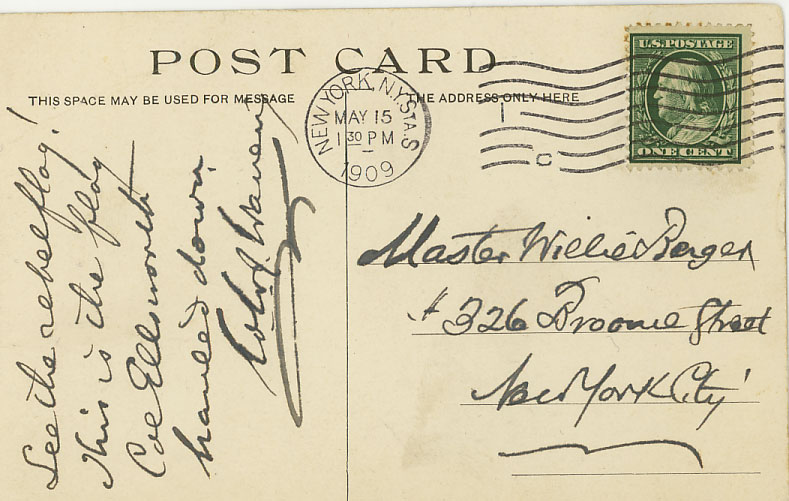 POST CARD
THIS SPACE MAY BE USED FOR MESSAGE
THE ADDRESS ONLY HERE
U.S. POSTAGE
ONE CENT
NEW YORK, N.Y. STA. S
MAY 15
1 30 PM
1909
1
C
See the rebel flag!
This is the flag
Col Ellsworth
hauled down.
Master Willie Berger
# 326 Broome Street
New York City